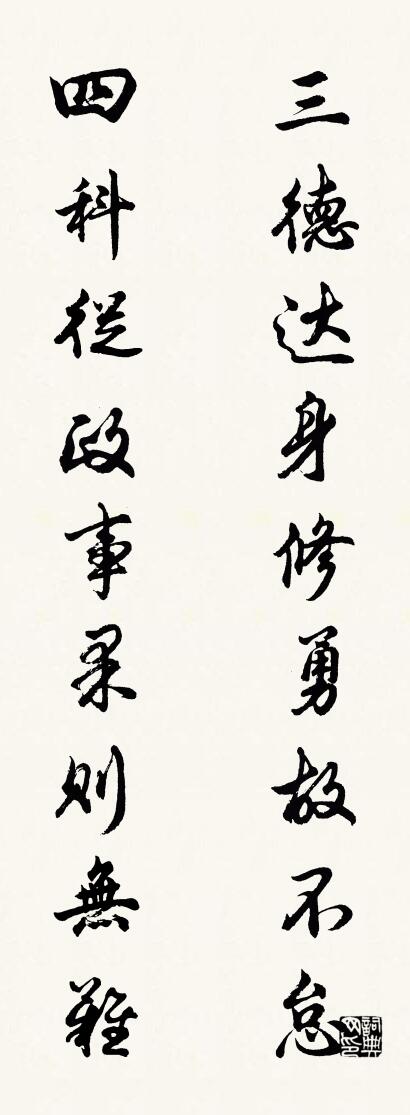 三德达身修勇故不怠
四科從政事果則無難
詞典网印